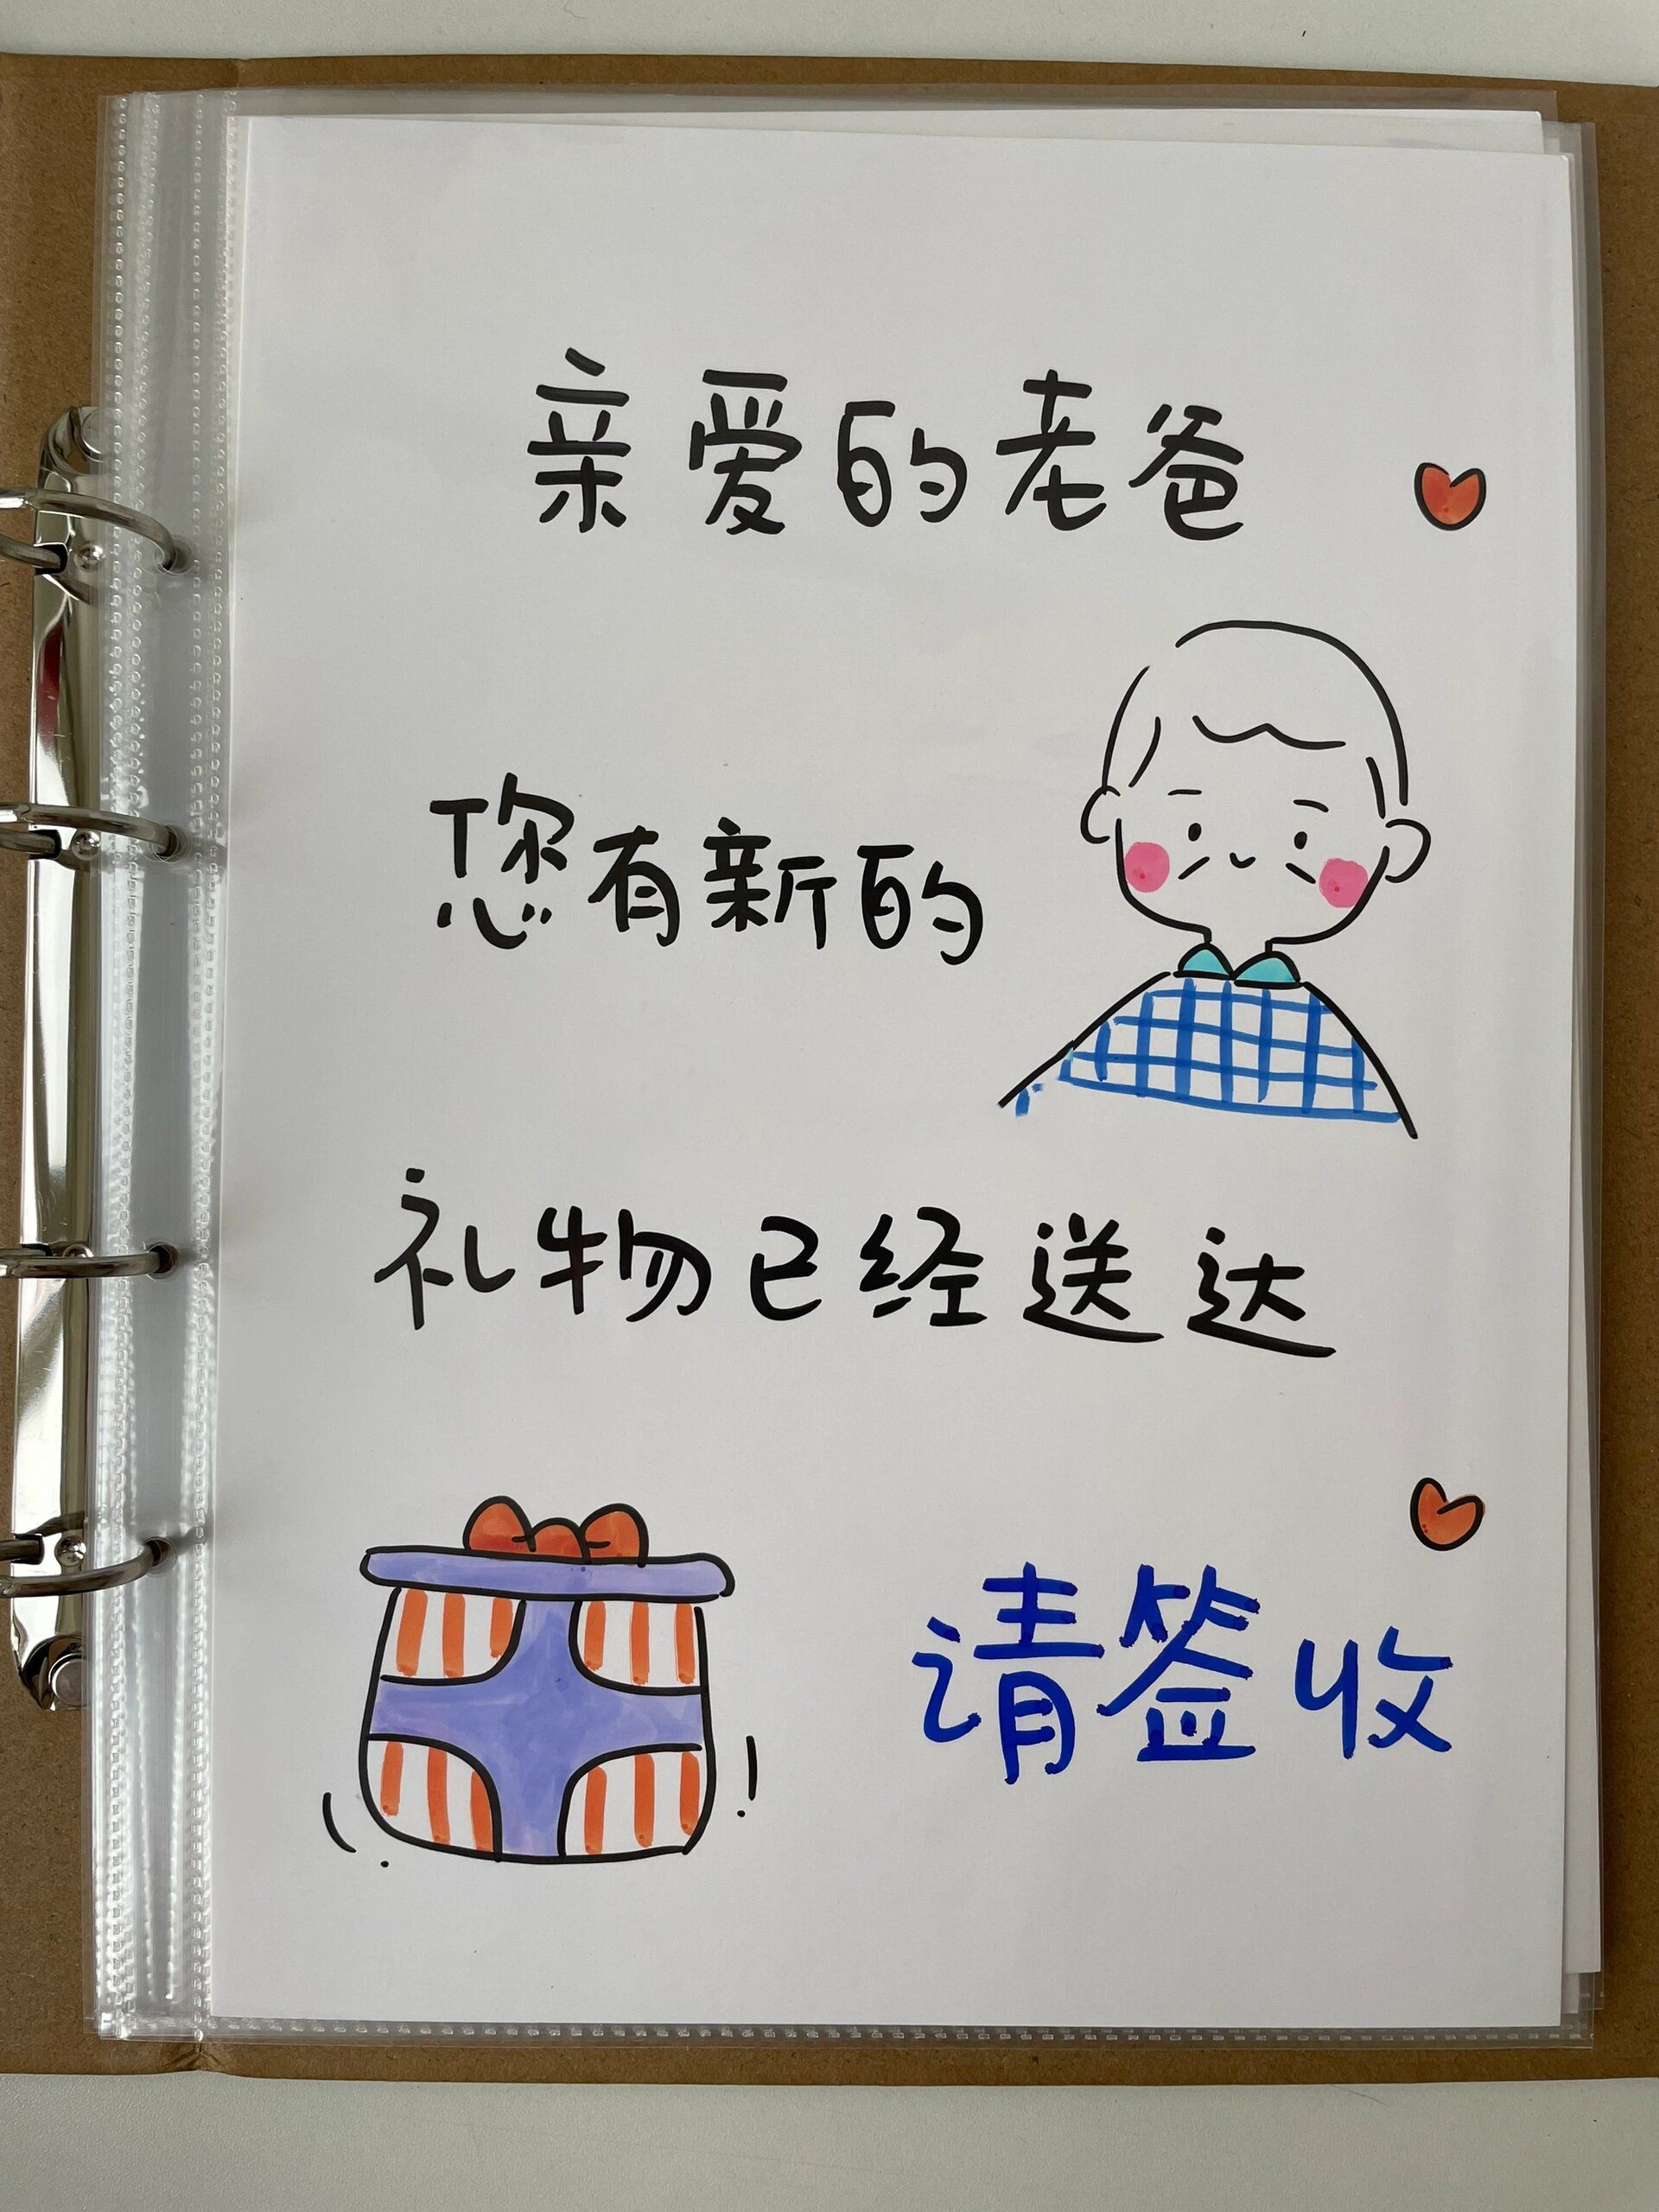 亲爱的老爸
您有新的
礼物已经送达
请签收